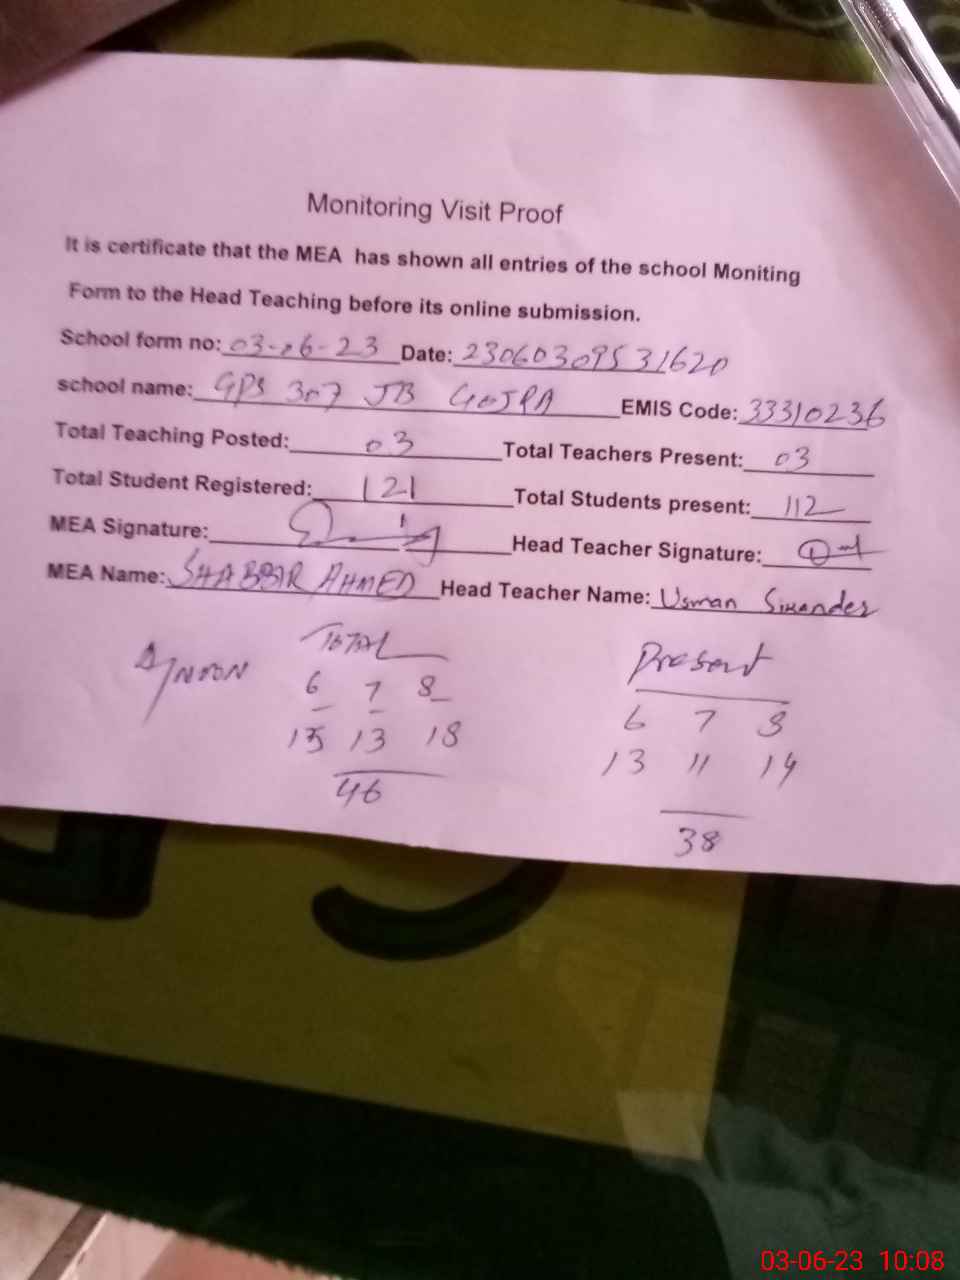 Monitoring Visit Proof
It is certificate that the MEA has shown all entries of the school Moniting
Form to the Head Teaching before its online submission.
School form no: 03-06-23 Date: 23060309531620
school name: GPS 307 JB GOJRA EMIS Code: 33310236
Total Teaching Posted: 03 Total Teachers Present: 03
Total Student Registered: 121 Total Students present: 112
MEA Signature: Head Teacher Signature:
MEA Name: SHABBIR AHMED Head Teacher Name: Usman Sikander
TOTAL Present
6 7 8 6 7 8
15 13 18 13 11 14
46 38
03-06-23 10:08